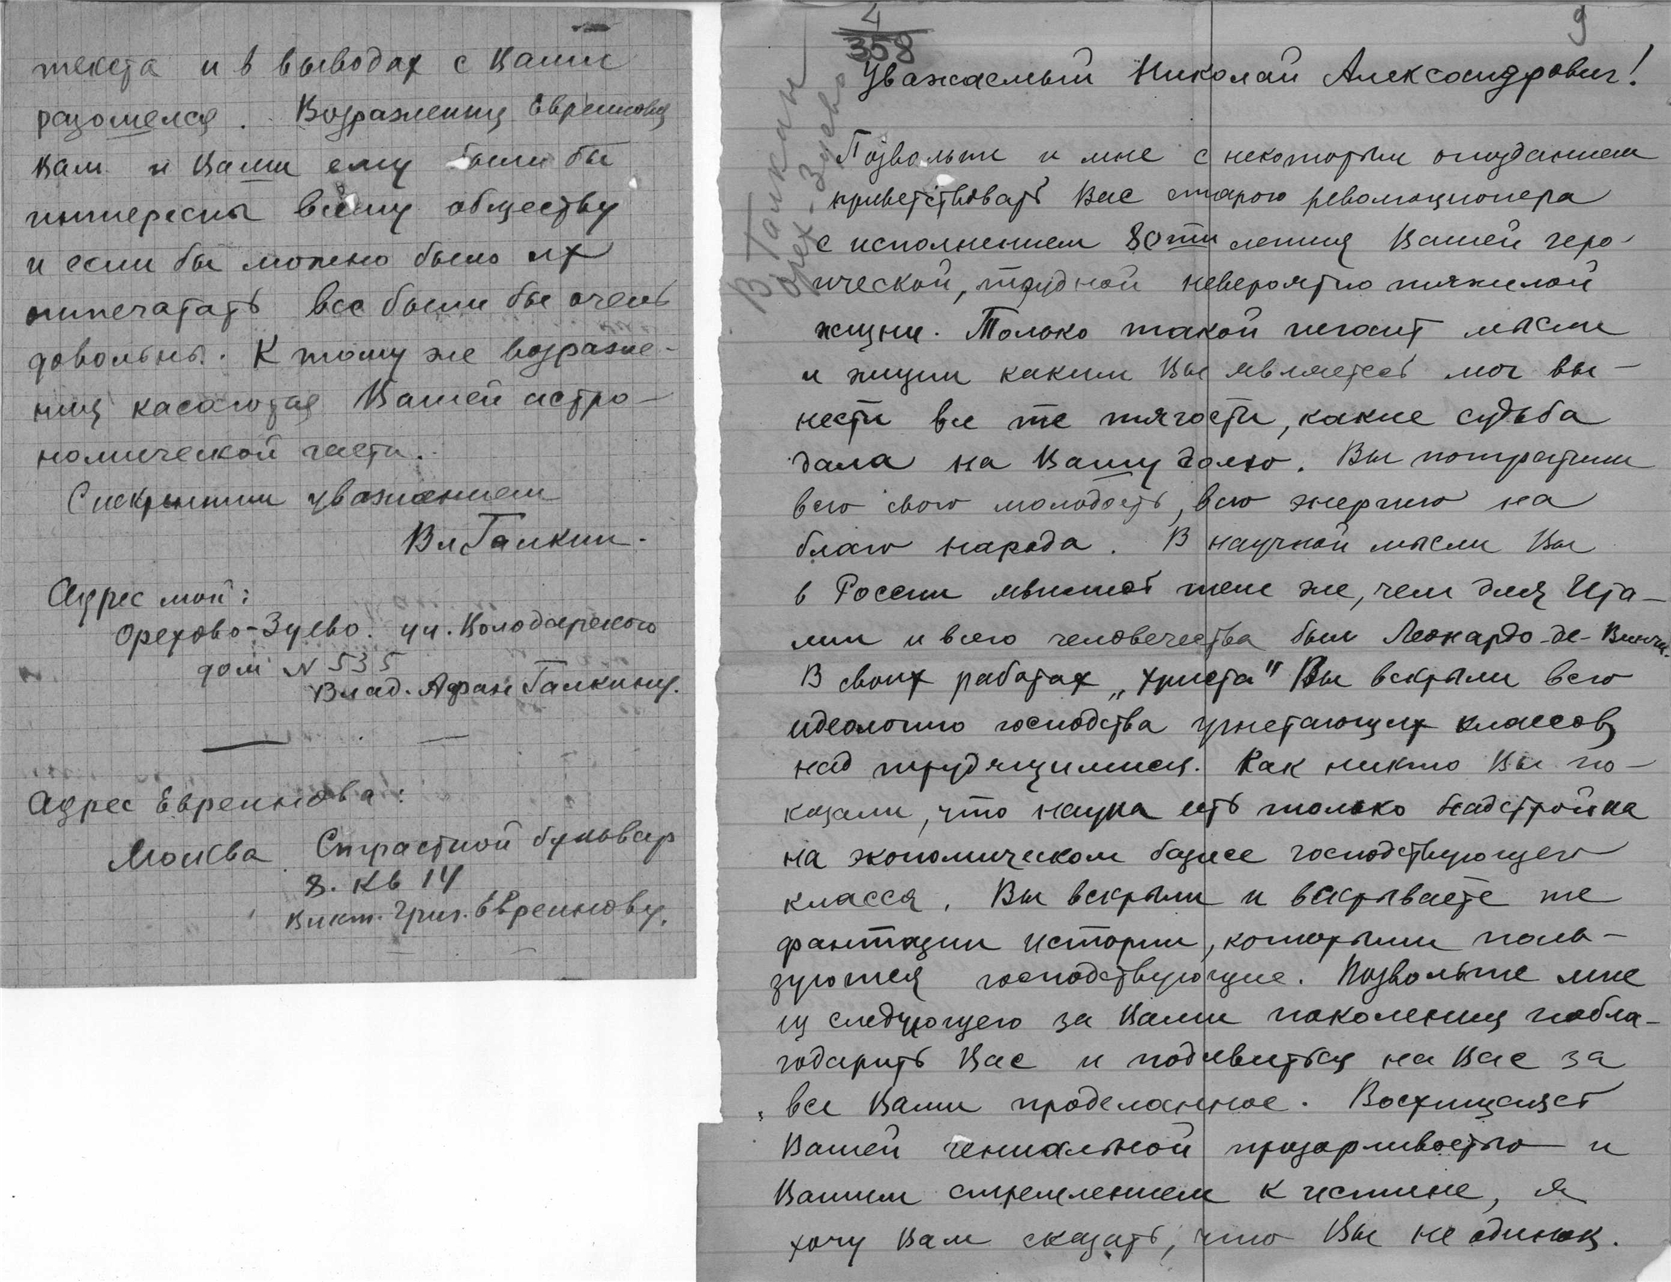 текста и в выводах с Вами
разошелся. Возражения Евреинова
Вам и Ваши ему были бы
интересны всему обществу
и если бы можно было их
отпечатать все были бы очень
довольны. К тому же возраже-
ния касаются Вашей астро-
номической части.
С искренним уважением
Вл Галкин.
Адрес мой:
Орехово-Зуево. ул. Володарского
дом N 535
Влад. Афан Галкину.
Адрес Евреинова:
Москва Страстной бульвар
8. кв 14
Викт. Григ. Евреинову.
4
358
9
В Галкин
Орех-Зуево
Уважаемый Николай Александрович!
Позвольте и мне с некоторым опозданием
приветствовать Вас старого революционера
с исполнением 80ти летия Вашей геро-
ической, трудной невероятно тяжелой
жизни. Только такой гигант мысли
и жизни каким Вы являетесь мог вы-
нести все те тягости, какие судьба
дала на Вашу долю. Вы потратили
всю свою молодость, всю энергию на
благо народа. В научной мысли Вы
в России явились тем же, чем для Ита-
лии и всего человечества был Леонардо-де-Винчи.
В своих работах „Христа" Вы вскрыли всю
идеологию господства угнетающих классов
над трудящимися. Как никто Вы по-
казали, что наука есть только надстройка
на экономическом базисе господствующего
класса. Вы вскрыли и вскрываете те
фантазии истории, которыми поль-
зуются господствующие. Позвольте мне
из следующего за Вами поколения побла-
годарить Вас и подивиться на Вас за
все Вами проделанное. Восхищаясь
Вашей гениальной прозорливостью и
Вашим стремлением к истине, я
хочу Вам сказать, что Вы не одинок.